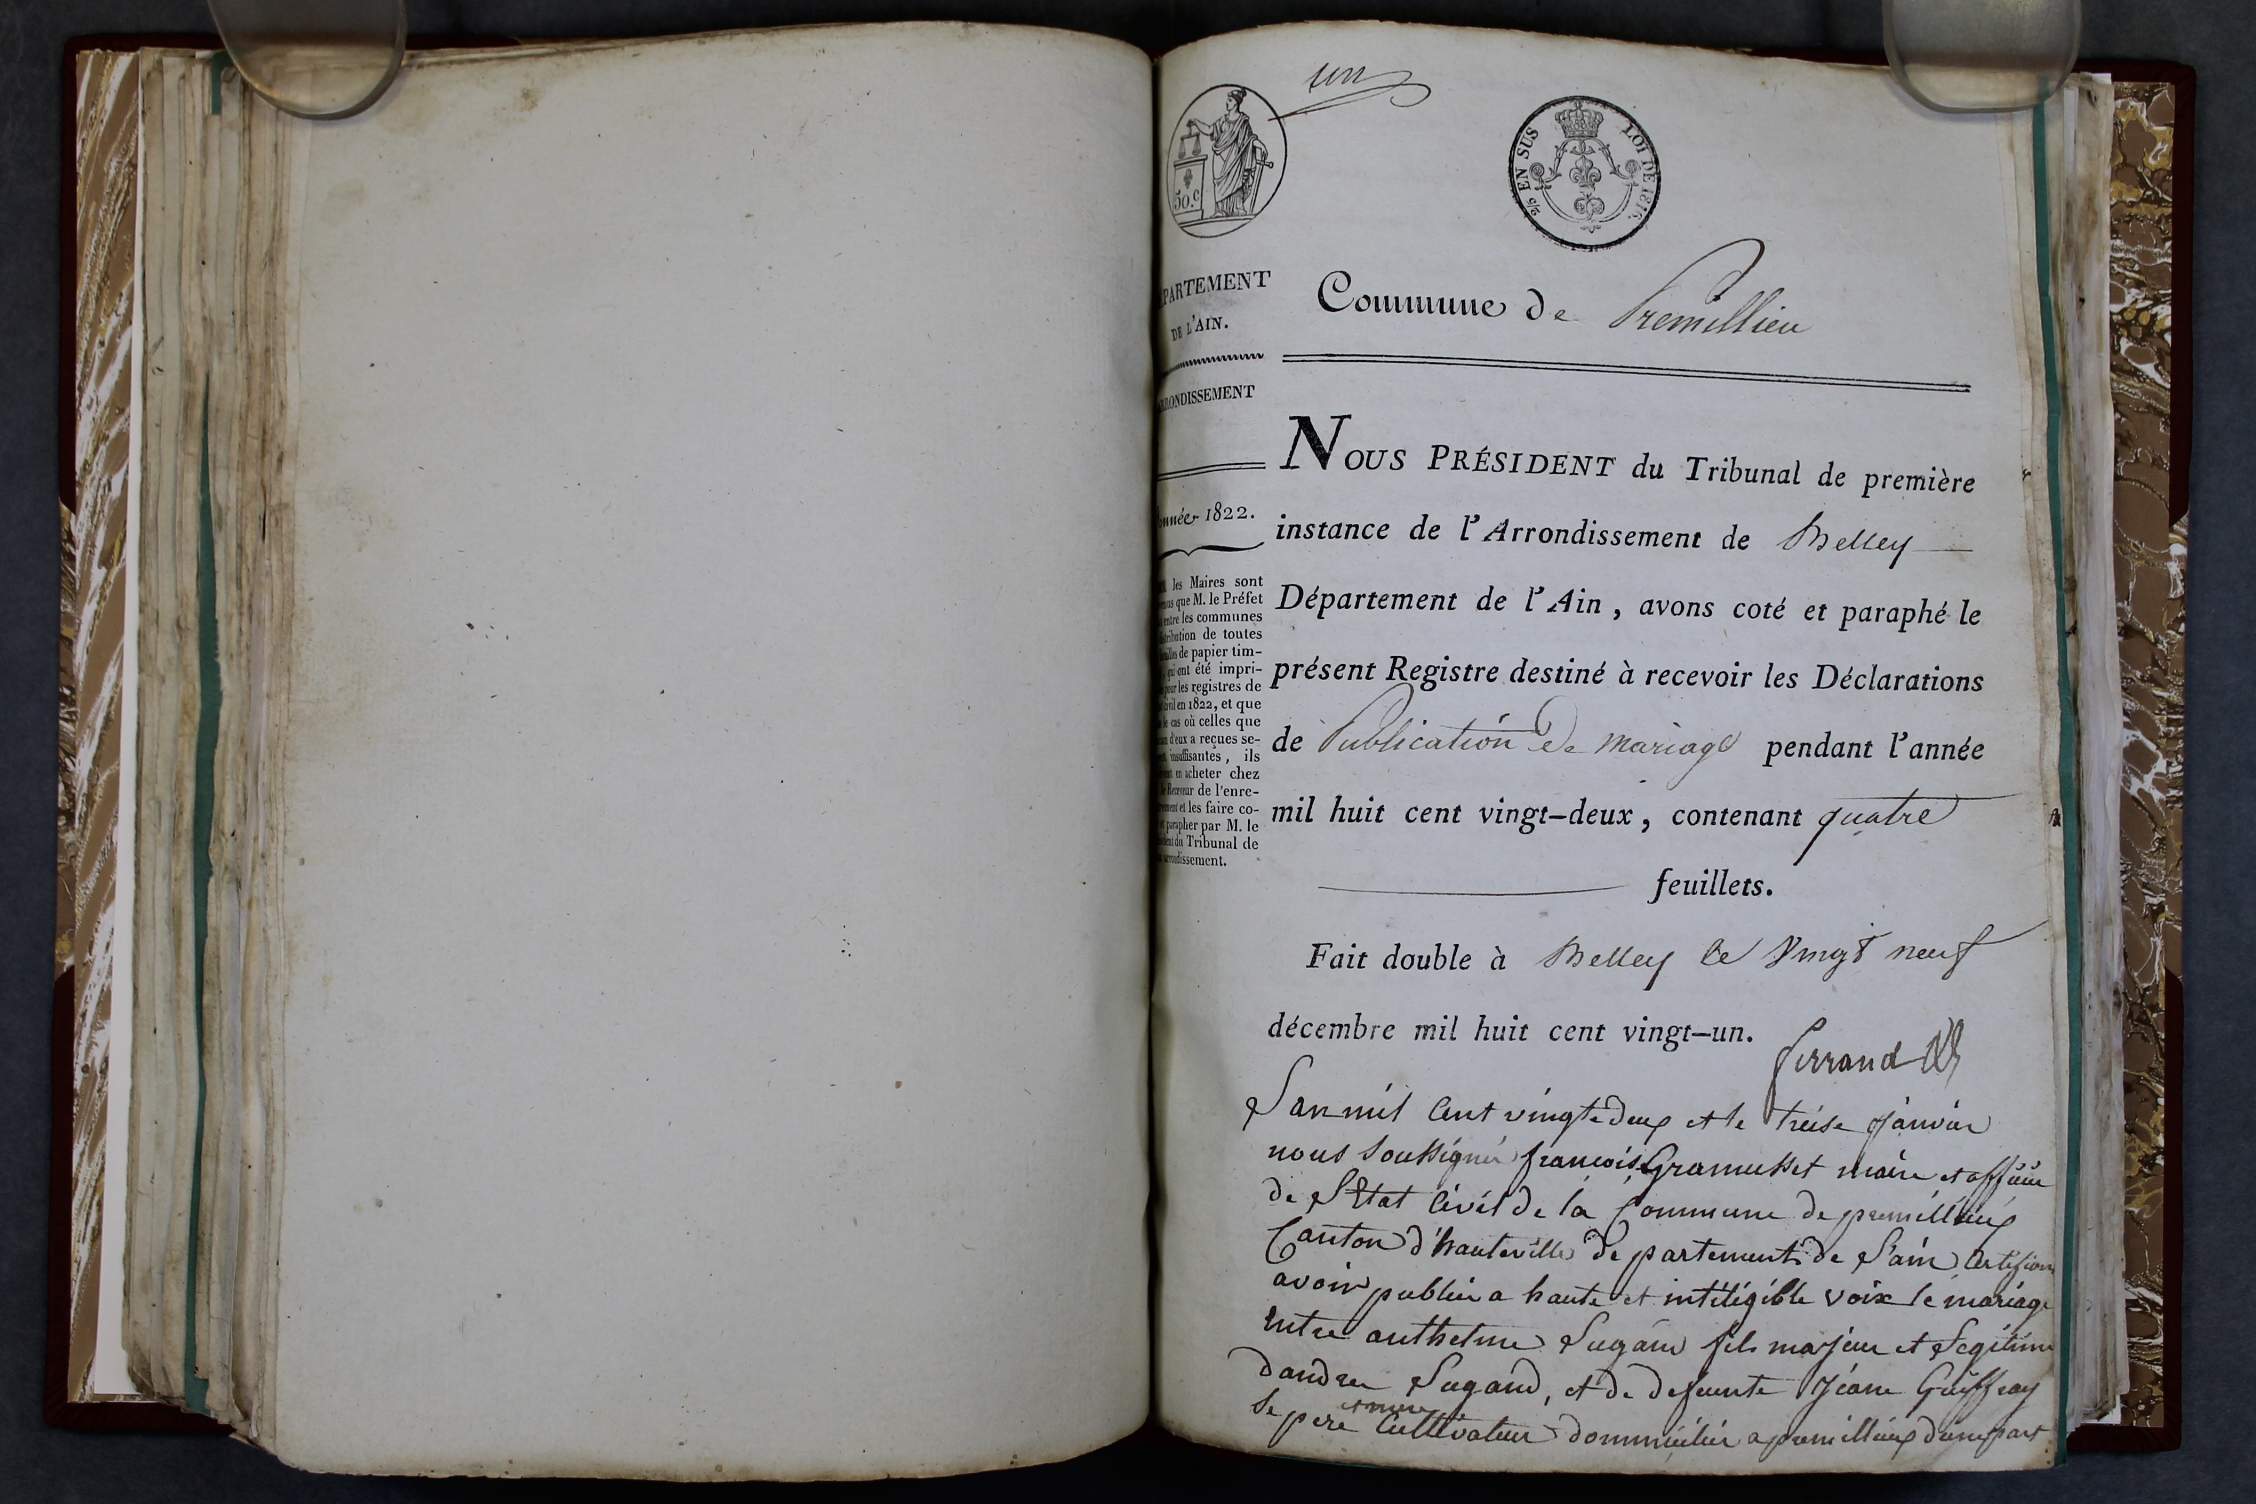 un
50.c
EN SUS
LOI DE 1816.
Commune de Premillieu
PARTEMENT
DE L'AIN.
RONDISSEMENT
année 1822.
les Maires sont
que M. le Préfet
entre les communes
de toutes
de papier tim-
qui ont été impri-
pour les registres de
civil en 1822, et que
le cas où celles que
d'eux a reçues se-
insuffisantes, ils
en acheter chez
Receveur de l'enre-
et les faire co-
parapher par M. le
du Tribunal de
arrondissement.
NOUS PRÉSIDENT du Tribunal de première
instance de l'Arrondissement de Belley
Département de l'Ain, avons coté et paraphé le
présent Registre destiné à recevoir les Déclarations
de Publication De mariage pendant l'année
mil huit cent vingt-deux, contenant quatre
feuillets.
Fait double à Belley le Vingt neuf
décembre mil huit cent vingt-un.
ferrand
L'an mil Cent vingt deux et le treise janvier
nous Soussigné françois Gramusset maire et officier
de L'Etat Civil de la Commune de premillieux
Canton d'hauteville departement de L'ain Certifions
avoir publier a haute et inteligible voix le mariage
Entre anthelme Sugand fils majeur et Legitime
dandre Sugand, et de defeunte Jéane Guiffray
Se pere et mere Cultivateur dommicilier a premillieux d'une part